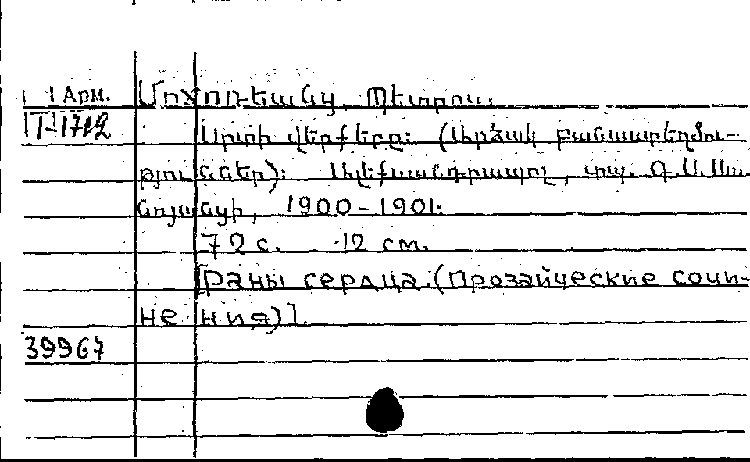 Арм.
Մոճոռեանց, Պետրոս.
II-1712
Սրտի վերքերը: (Արձակ բանաստեղծու-
թյուններ): Ալեքսանդրապոլ, տպ. Գ. Ս. Սա
նոյանցի, 1900-1901.
72 с. 12 см.
[Раны сердца. (Прозаические сочи-
нения)].
39967